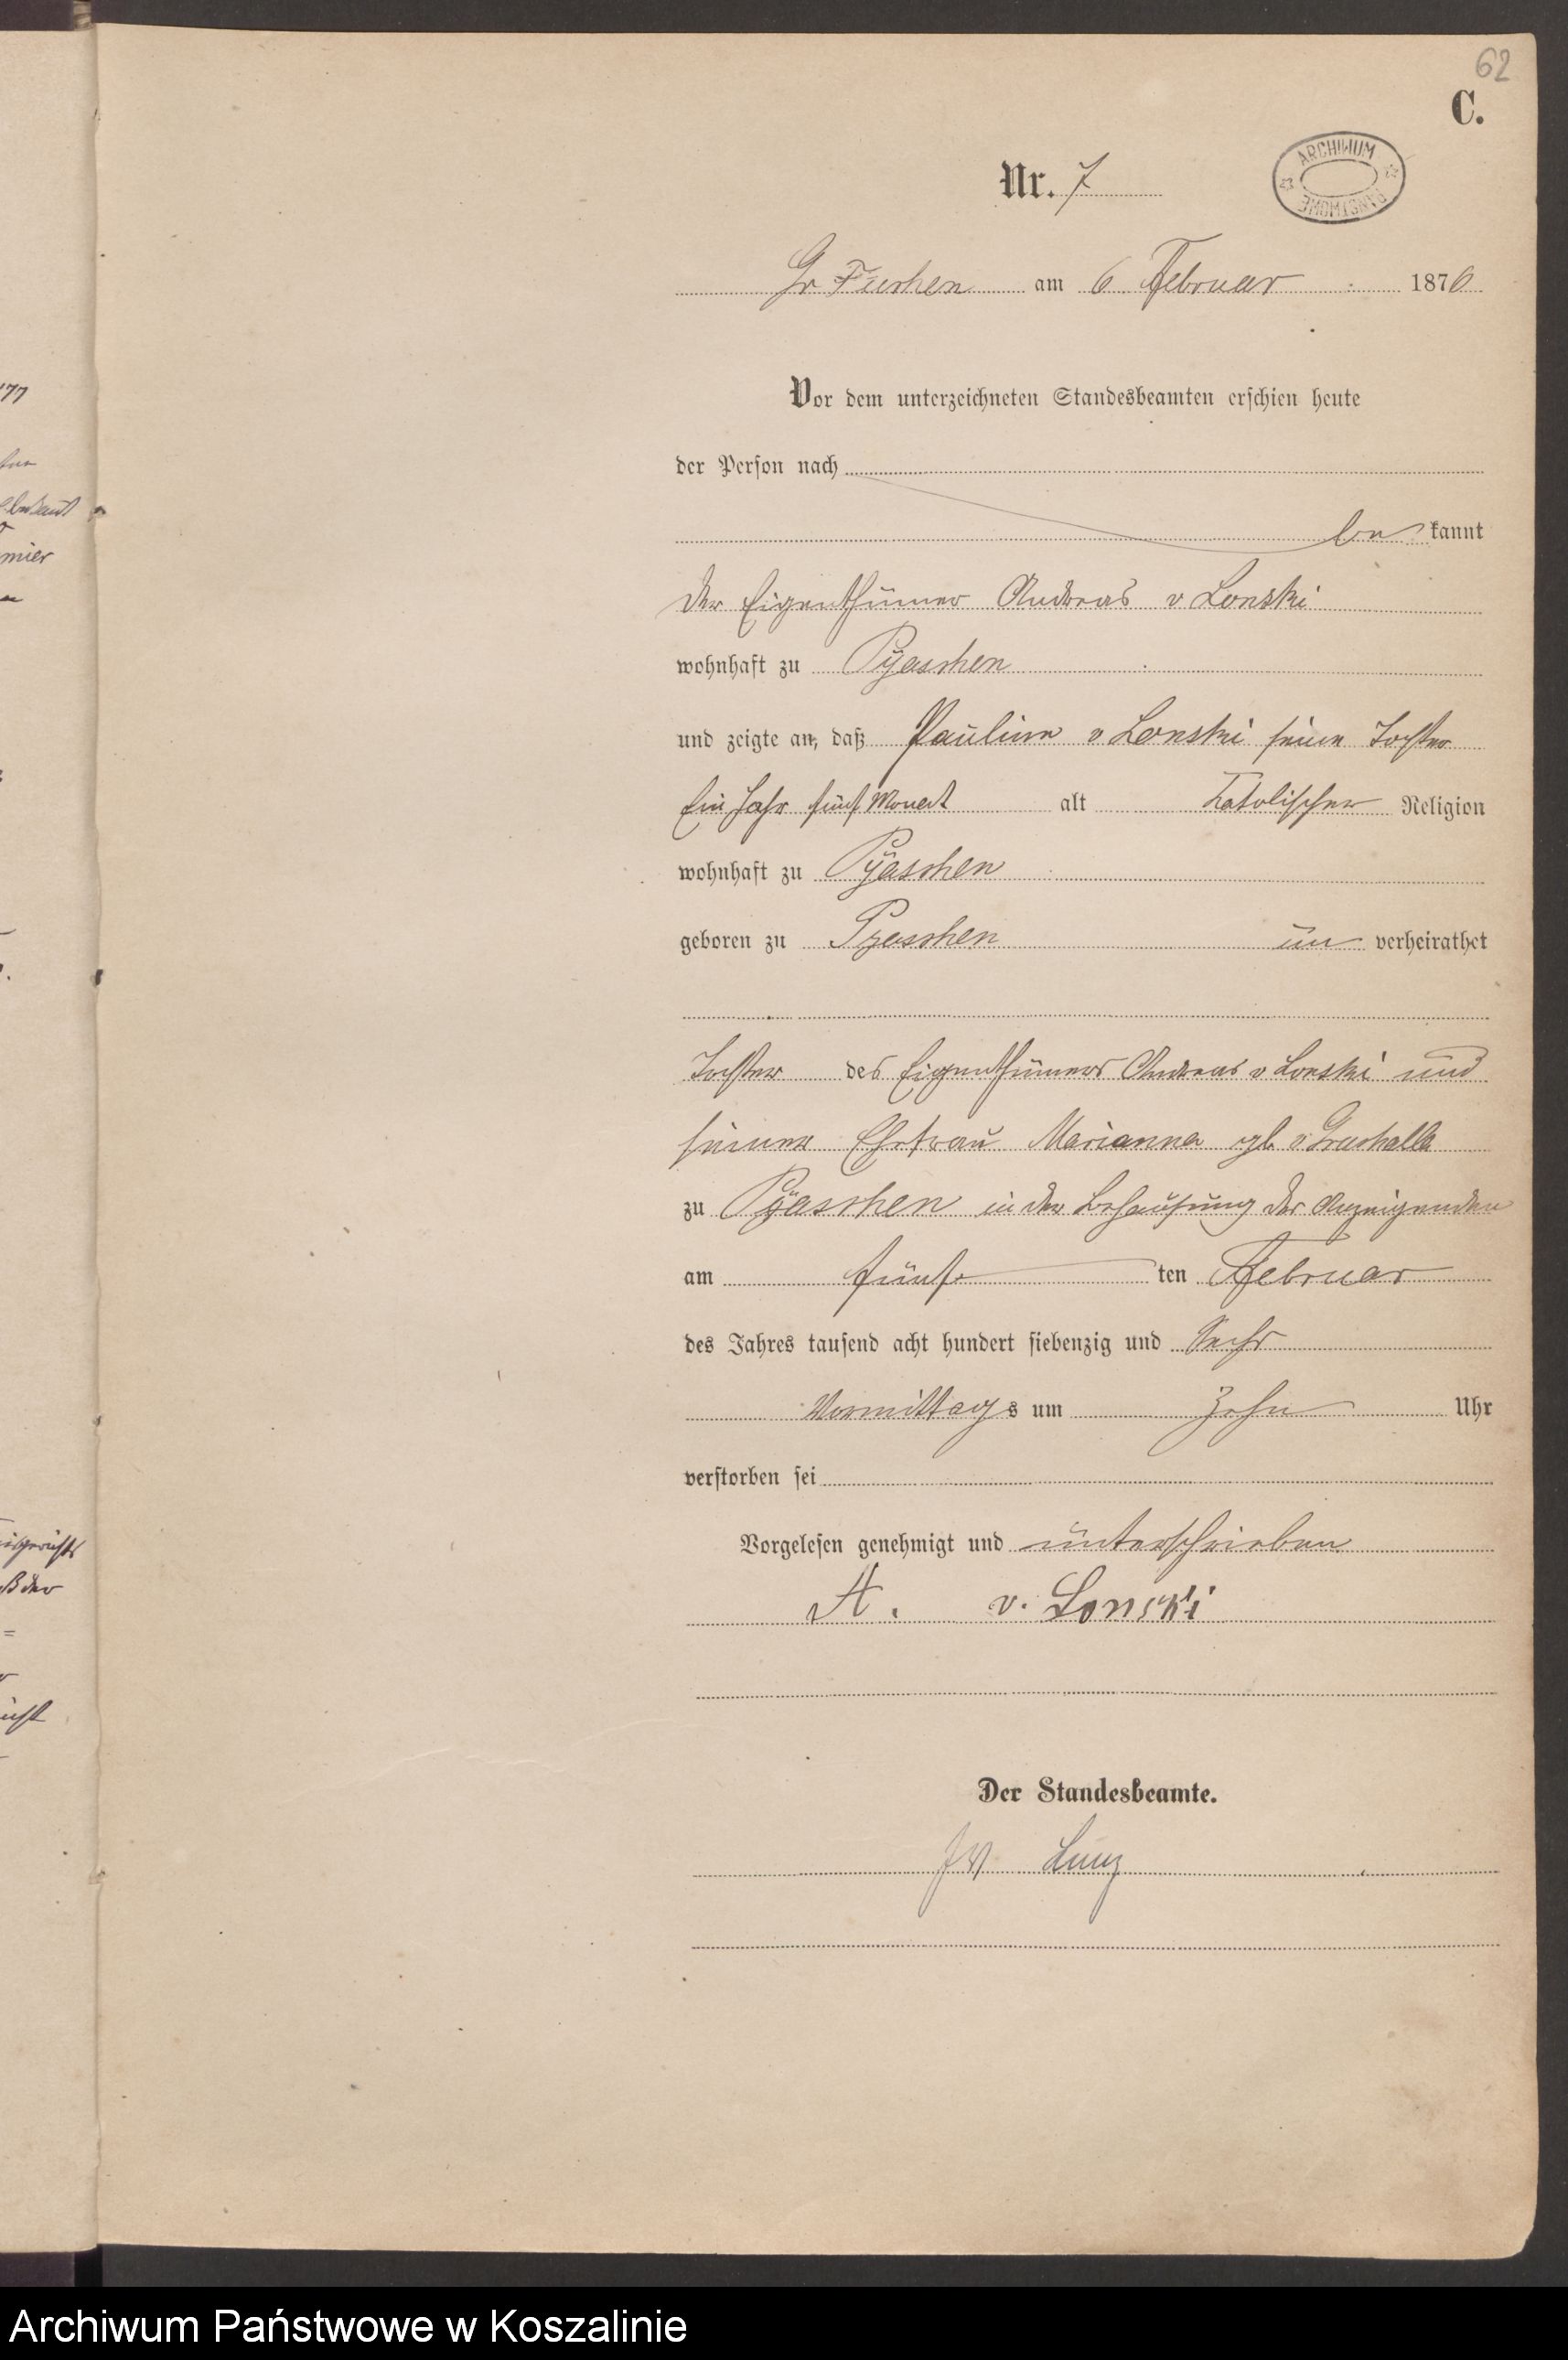 62
C.
ARCHIWUM
PAŃSTWOWE
Nr. 7
Gr Tuchen am 6 Februar 1876
Vor dem unterzeichneten Standesbeamten erschien heute
der Person nach
be kannt
der Eigenthümer Andreas v Lonski
wohnhaft zu Pyaschen
und zeigte an, daß Pauline v Lonski seine Tochter
Ein Jahr fünf Monat alt Katolischer Religion
wohnhaft zu Pyaschen
geboren zu Pyaschen un verheirathet
Tochter des Eigenthümers Andreas v Lonski und
seiner Ehefrau Marianna
zu Pyaschen in der Behausung des Anzeigenden
am fünf ten Februar
des Jahres tausend acht hundert siebenzig und Sechs
Vormittags um Zehn Uhr
verstorben sei
Vorgelesen genehmigt und unterschrieben
A. v. Lonski
Der Standesbeamte.
Archiwum Państwowe w Koszalinie